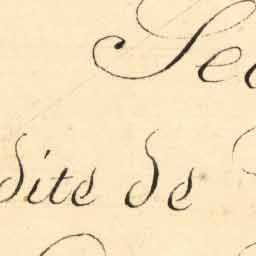 Sec
dite de